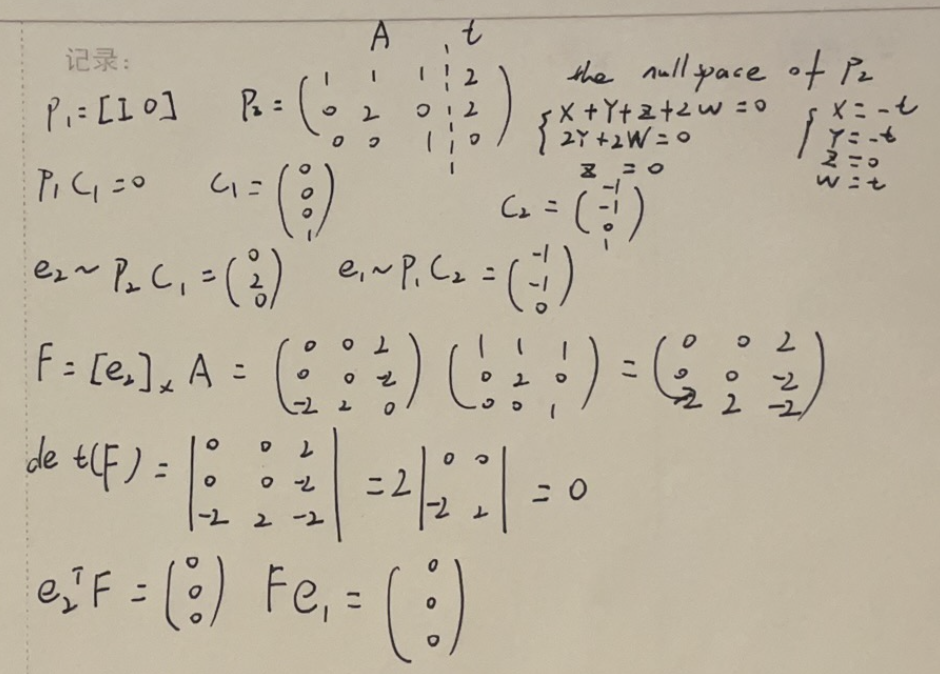 记录:
A t
P₁ = [I 0] P₂ = ( 1 1 1 ¦ 2 ; 0 2 0 ¦ 2 ; 0 0 1 ¦ 0 ) the nullspace of P₂
{ X + Y + Z + 2W = 0 ; 2Y + 2W = 0 ; Z = 0 { X = -t ; Y = -t ; Z = 0 ; W = t
P₁ C₁ = 0 C₁ = ( 0 ; 0 ; 0 ; 1 ) C₂ = ( -1 ; -1 ; 0 ; 1 )
e₂ ~ P₂ C₁ = ( 0 ; 2 ; 0 ) e₁ ~ P₁ C₂ = ( -1 ; -1 ; 0 )
F = [e₂]ₓ A = ( 0 0 2 ; 0 0 -2 ; -2 2 0 ) ( 1 1 1 ; 0 2 0 ; 0 0 1 ) = ( 0 0 2 ; 0 0 -2 ; -2 2 -2 )
det(F) = | 0 0 2 ; 0 0 -2 ; -2 2 -2 | = 2 | 0 0 ; -2 2 | = 0
e₂ᵀ F = ( 0 ; 0 ; 0 ) F e₁ = ( 0 ; 0 ; 0 )